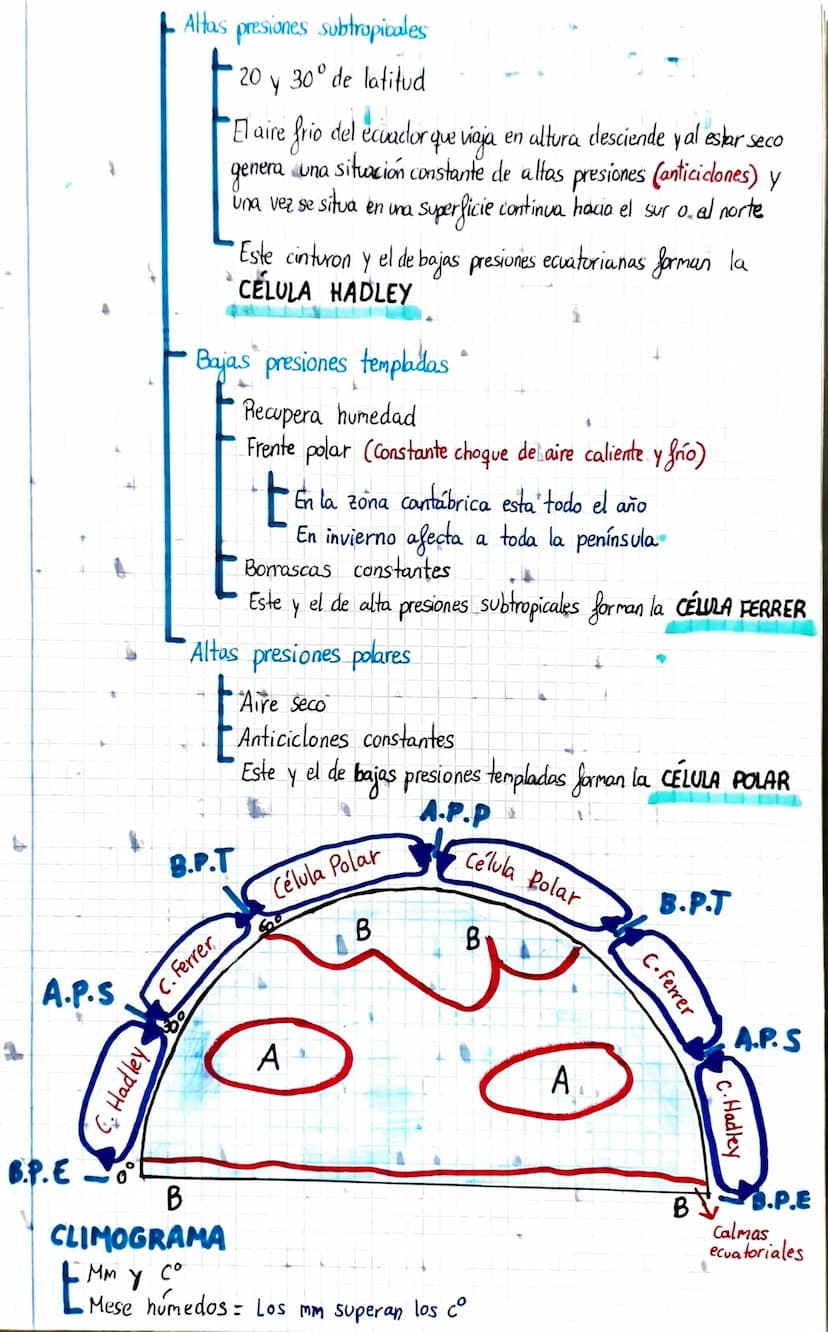 Altas presiones subtropicales
20 y 30º de latitud
El aire frio del ecuador que viaja en altura desciende y al estar seco
genera una situación constante de altas presiones (anticiclones) y
una vez se situa en una superficie continua hacia el sur o al norte
Este cinturon y el de bajas presiones ecuatorianas forman la
CÉLULA HADLEY
Bajas presiones templadas
Recupera humedad
Frente polar (Constante choque de aire caliente y frío)
En la zona cantábrica esta todo el año
En invierno afecta a toda la península
Borrascas constantes
Este y el de alta presiones subtropicales forman la CÉLULA FERRER
Altas presiones polares
Aire seco
Anticiclones constantes
Este y el de bajas presiones templadas forman la CÉLULA POLAR
A.P.P
B.P.T
Célula Polar
Célula Polar
B.P.T
60º
B
B
C. Ferrer
C. Ferrer
A.P.S
30º
A.P.S
A
A
C. Hadley
C. Hadley
B.P.E
0º
B
B
B.P.E
Calmas
ecuatoriales
CLIMOGRAMA
Mm y Cº
Mese húmedos = Los mm superan los cº